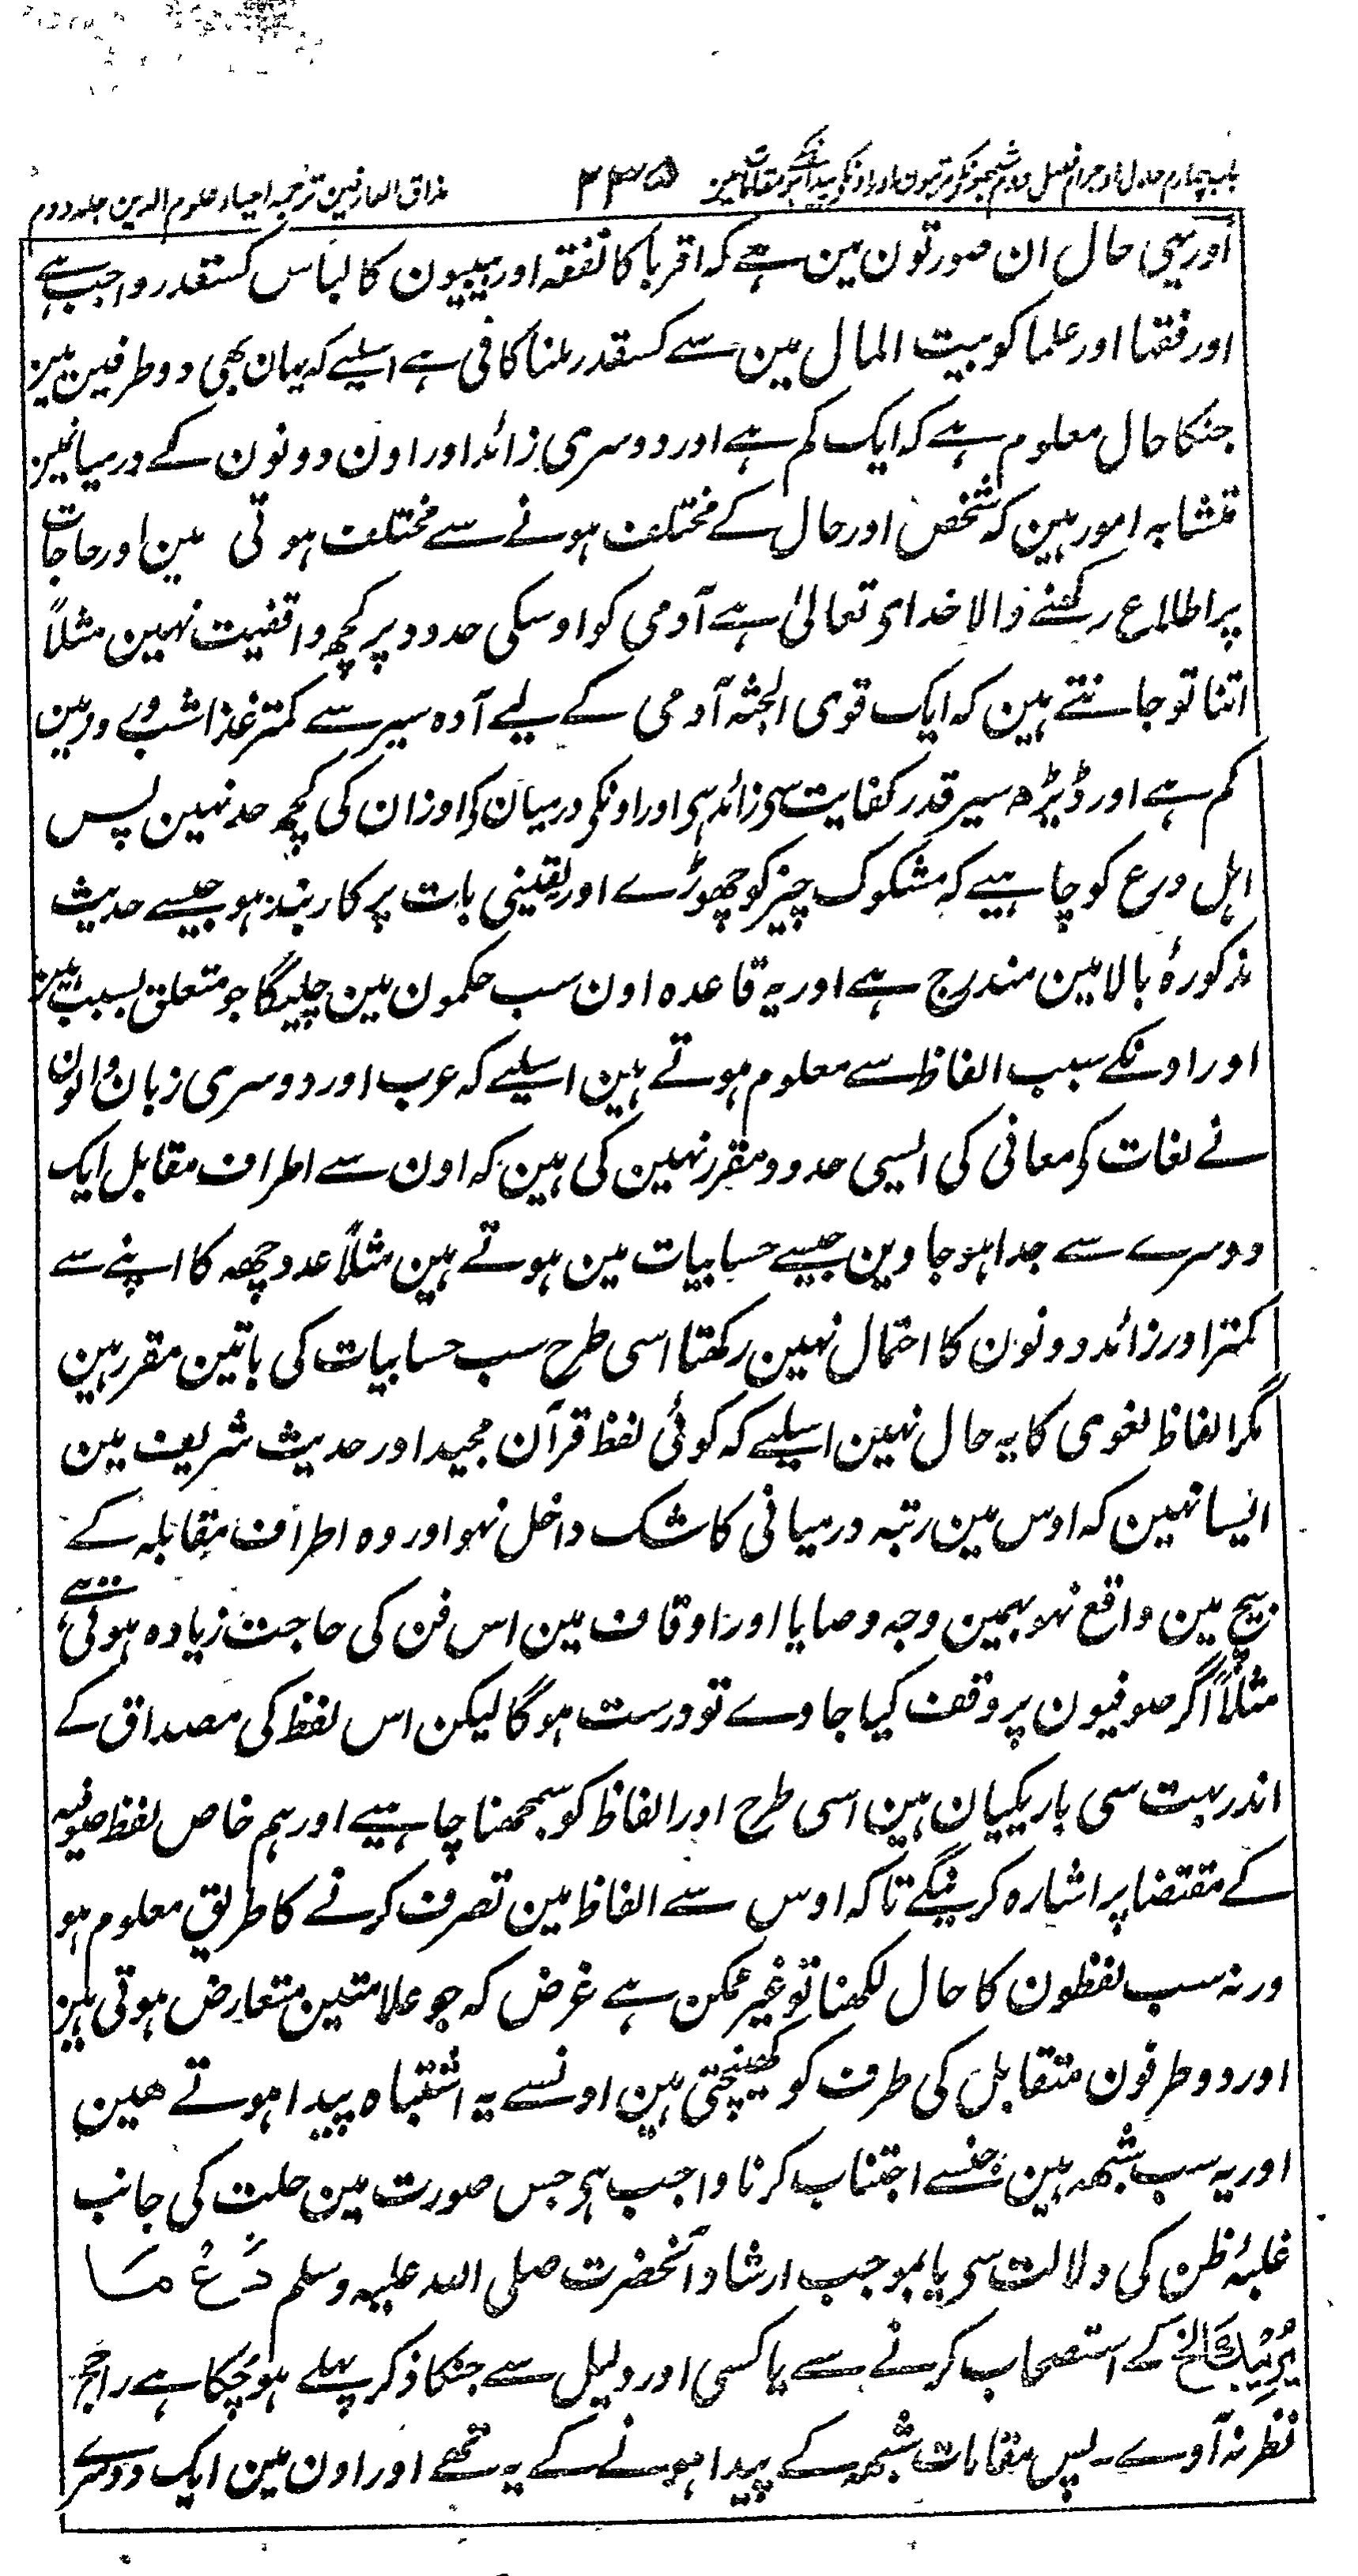 باب چہارم حلال و حرام فصل دوم شبہونکے مرتبون اور اونکے پیدا ہونیکے مقامات مین ۲۳۵ مذاق العارفین ترجمہ احیاء علوم الدین جلد دوم
اور یہی حال ان صورتون مین ہے کہ اقربا کا نفقہ اور بیبیون کا لباس کسقدر واجب ہے
اور فقہا اور علما کو بیت المال مین سے کسقدر ملنا کافی ہے اسلیے کہ یہان بھی دو طرفین ہین
جنکا حال معلوم ہے کہ ایک کم ہے اور دوسری زائد اور اون دونون کے درمیانمین
متشابہ امور ہین کہ شخص اور حال کے مختلف ہونے سے مختلف ہوتی ہین اور حاجات
پر اطلاع رکھنے والا خدای تعالیٰ ہے آدمی کو اوسکی حدود پر کچھ واقفیت نہین مثلاً
اتنا تو جانتے ہین کہ ایک قوی الجثہ آدمی کے لیے آدہ سیر سے کمتر غذا شب و روز مین
کم ہے اور ڈیڑھ سیر قدر کفایت سی زائد ہی اور اونکی درمیان کی اوزان کی کچھ حد نہین پس
اہل ورع کو چاہیے کہ مشکوک چیز کو چھوڑے اور یقینی بات پر کاربند ہو جیسے حدیث
مذکورۂ بالا مین مندرج ہے اور یہ قاعدہ اون سب حکمون مین چلیگا جو متعلق بسبب ہین
اور اونکے سبب الفاظ سے معلوم ہوتے ہین اسلیے کہ عرب اور دوسری زبان والون
نے لغات کی معانی کی ایسی حدود مقرر نہین کی ہین کہ اون سے اطراف مقابل ایک
دوسرے سے جدا ہو جاوین جیسے حسابیات مین ہوتے ہین مثلاً عدد چھہ کا اپنے سے
کمتر اور زائد دونون کا احتمال نہین رکھتا اسی طرح سب حسابیات کی باتین مقرر ہین
مگر الفاظ لغوی کا یہ حال نہین اسلیے کہ کوئی لفظ قرآن مجید اور حدیث شریف مین
ایسا نہین کہ اوس مین رتبہ درمیانی کا شک داخل نہو اور وہ اطراف مقابلہ کے
بیچ مین واقع نہو بہمین وجہ وصایا اور اوقاف مین اس فن کی حاجت زیادہ ہوتی ہے
مثلاً اگر صوفیون پر وقف کیا جاوے تو درست ہوگا لیکن اس لفظ کی مصداق کے
اندر بہت سی باریکیان ہین اسی طرح اور الفاظ کو سمجھنا چاہیے اور ہم خاص لفظ صوفیہ
کے مقتضا پر اشارہ کرینگے تاکہ اوس سے الفاظ مین تصرف کرنے کا طریق معلوم ہو
ورنہ سب لفظون کا حال لکھنا تو غیر ممکن ہے غرض کہ جو علامتین متعارض ہوتی ہین
اور دو طرفون متقابل کی طرف کو کھینچتی ہین اونسے یہ اشتباہ پیدا ہوتے ھین
اور یہ سب شبھہ ہین جنسے اجتناب کرنا واجب ہی جس صورت مین حلت کی جانب
غلبۂ ظن کی دلالت سی یا بموجب ارشاد آنحضرت صلی اللہ علیہ وسلم دَعْ مَا
یُرِیْبُكَ الخ کے استصحاب کرنے سے یا کسی اور دلیل سے جنکا ذکر پہلے ہو چکا ہے راجح
نظر نہ آوے ۔ پس مقامات شبھہ کے پیدا ہونے کے یہ تھے اور اون مین ایک دوسرے